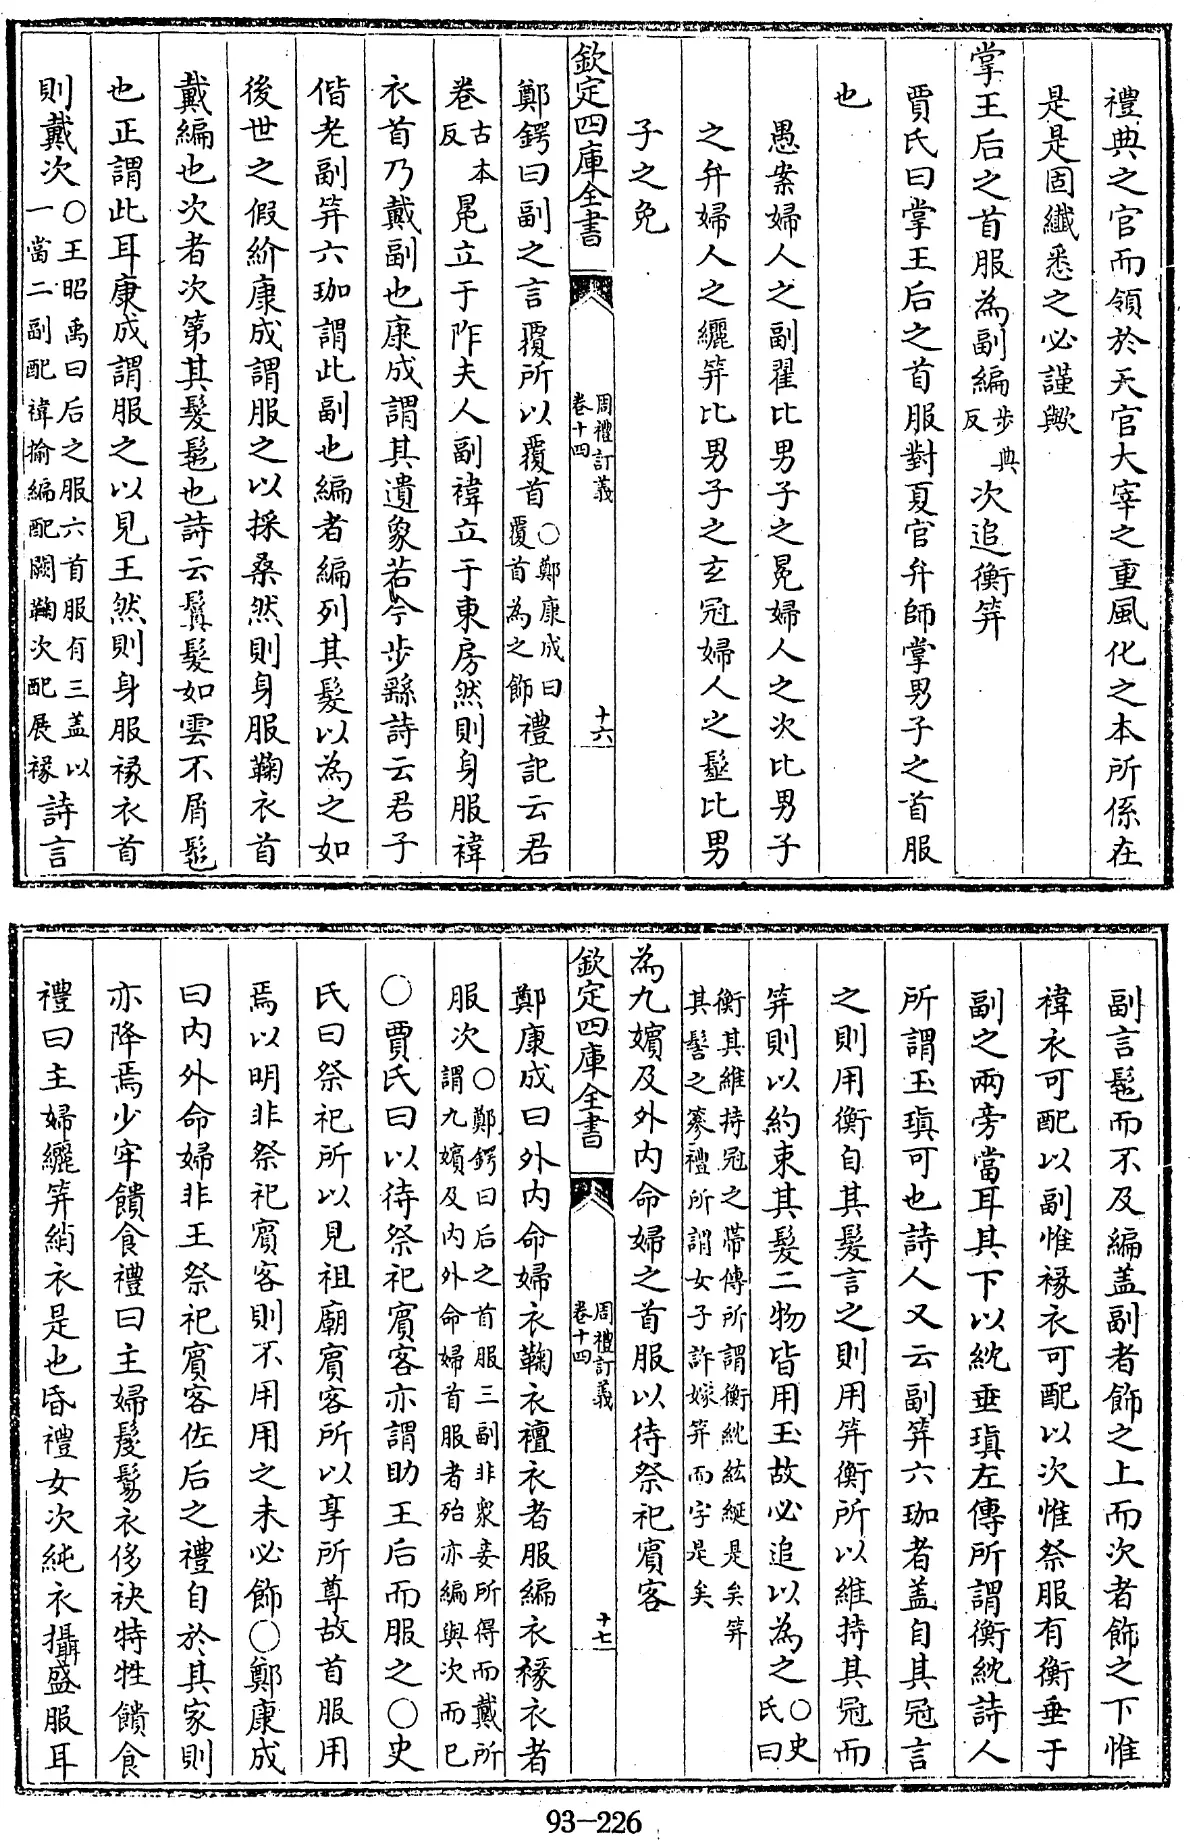 禮典之官而領於天官大宰之重風化之本所係在
是是固纎悉之必謹歟
掌王后之首服為副編步典反次追衡筓
賈氏曰掌王后之首服對夏官弁師掌男子之首服
也
愚案婦人之副翟比男子之冕婦人之次比男子
之弁婦人之纚筓比男子之玄冠婦人之髽比男
子之免
欽定四庫全書
周禮訂義
卷十四
十六
鄭鍔曰副之言覆所以覆首○鄭康成曰覆首為之飾禮記云君
卷古本反冕立于阼夫人副褘立于東房然則身服褘
衣首乃戴副也康成謂其遺象若今步繇詩云君子
偕老副筓六珈謂此副也編者編列其髮以為之如
後世之假紒康成謂服之以採桑然則身服鞠衣首
戴編也次者次第其髮髢也詩云鬒髮如雲不屑髢
也正謂此耳康成謂服之以見王然則身服褖衣首
則戴次○王昭禹曰后之服六首服有三盖以一當二副配褘揄編配闕鞠次配展褖詩言
副言髢而不及編盖副者飾之上而次者飾之下惟
褘衣可配以副惟褖衣可配以次惟祭服有衡垂于
副之兩旁當耳其下以紞垂瑱左傳所謂衡紞詩人
所謂玉瑱可也詩人又云副筓六珈者盖自其冠言
之則用衡自其髮言之則用筓衡所以維持其冠而
筓則以約束其髮二物皆用玉故必追以為之○史氏曰
衡其維持冠之帶傳所謂衡紞紘綖是矣筓
其髻之簪禮所謂女子許嫁筓而字是矣
為九嬪及外內命婦之首服以待祭祀賓客
欽定四庫全書
周禮訂義
卷十四
十七
鄭康成曰外內命婦衣鞠衣襢衣者服編衣褖衣者
服次○鄭鍔曰后之首服三副非衆妾所得而戴所謂九嬪及内外命婦首服者殆亦編與次而已
○賈氏曰以待祭祀賓客亦謂助王后而服之○史
氏曰祭祀所以見祖廟賓客所以享所尊故首服用
焉以明非祭祀賓客則不用用之未必飾○鄭康成
曰内外命婦非王祭祀賓客佐后之禮自於其家則
亦降焉少牢饋食禮曰主婦髲鬄衣侈袂特牲饋食
禮曰主婦纚筓綃衣是也昏禮女次純衣攝盛服耳
93-226